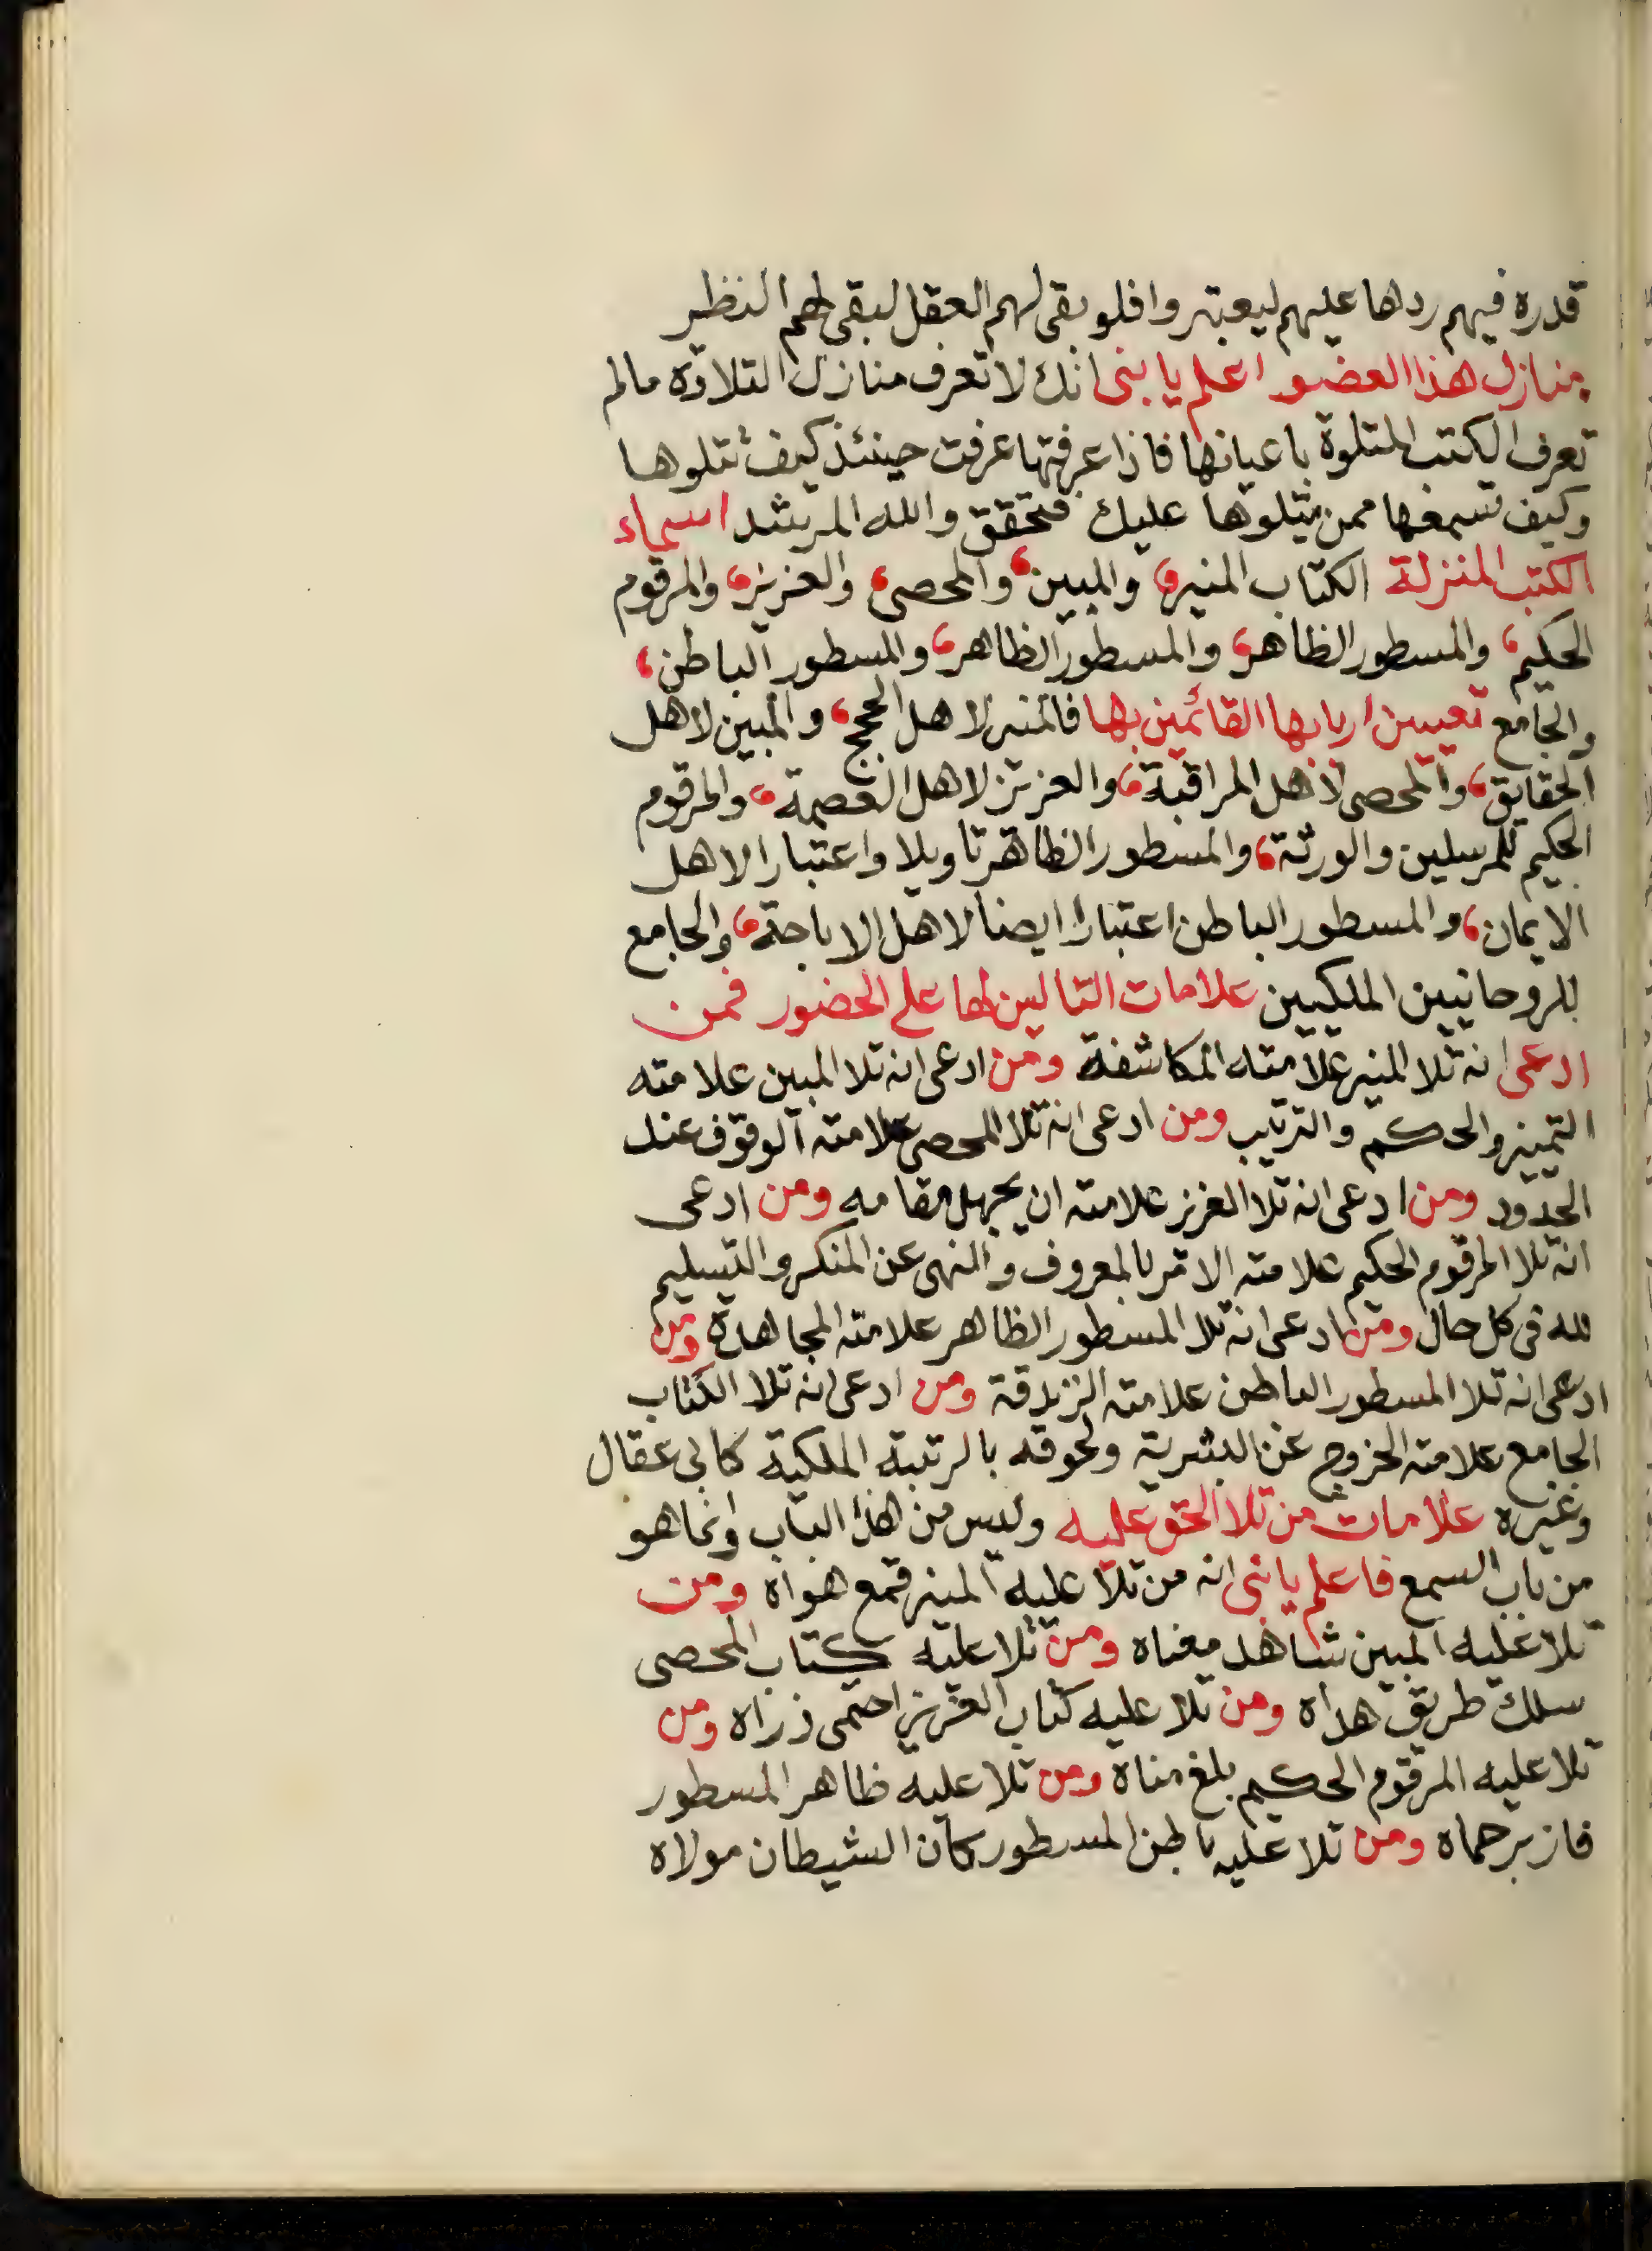 قدره فيهم ردها عليهم ليعتبروا فلو بقى لهم العقل لبقى لهم النظر
منازل هذا العضو اعلم يا بنى انك لا تعرف منازل التلاوة مالم
تعرف الكتب المتلوة باعيانها فاذا عرفتها عرفت حينئذ كيف تتلوها
وكيف تسمعها ممن يتلوها عليك فتحقق والله المرشد اسماء
الكتب المنزلة الكتاب المنير، والمبين، والمحصى، والعزيز، والمرقوم
الحكيم، والمسطور الظاهر، والمسطور الظاهر، والمسطور الباطن،
والجامع تعيين اربابها القائمين بها فالمنير لاهل الحجج، والمبين لاهل
الحقايق، والمحصى لاهل المراقبة، والعزيز لاهل العصمة، والمرقوم
الحكيم للمرسلين والورثة، والمسطور الظاهر تاويلا واعتبارا لاهل
الايمان، والمسطور الباطن اعتبارا ايضا لاهل الاباحة، والجامع
للروحانيين الملكيين علامات التالين لها على الحضور فمن
ادعى انه تلا المنير علامته المكاشفة ومن ادعى انه تلا المبين علامته
التمييز والحكم والترتيب ومن ادعى انه تلا المحصى علامته الوقوف عند
الحدود ومن ادعى انه تلا العزيز علامته ان يجهل مقامه ومن ادعى
انه تلا المرقوم الحكيم علامته الامر بالمعروف والنهى عن المنكر والتسليم
لله فى كل حال ومن ادعى انه تلا المسطور الظاهر علامته المجاهدة ومن
ادعى انه تلا المسطور الباطن علامته الزندقة ومن ادعى انه تلا الكتاب
الجامع علامته الخروج عن البشرية ولحوقه بالرتبة الملكية كابى عقال
وغيره علامات من تلا الحق عليه وليس من هذا الباب وانما هو
من باب السمع فاعلم يا بنى انه من تلا عليه المنير قمع هواه ومن
تلا عليه المبين شاهد معناه ومن تلا عليه كتاب المحصى
سلك طريق هداه ومن تلا عليه كتاب العزيز احتمى ذراه ومن
تلا عليه المرقوم الحكيم بلغ مناه ومن تلا عليه ظاهر المسطور
فاز برحماه ومن تلا عليه باطن المسطور كان الشيطان مولاه